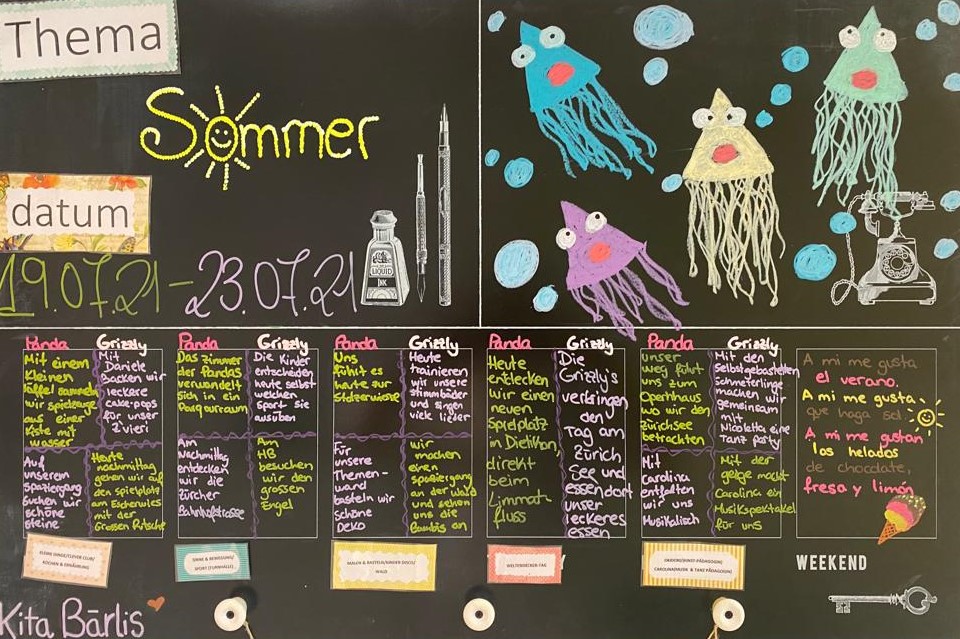 Thema
Sommer
datum
LIQUID
INK
19.07.21 - 23.07.21
Panda
Grizzly
Mit einem
kleinen
Löffel sammeln
wir spielzeuge
aus einer
kiste mit
wasser
Mit
Daniele
backen wir
leckere
cake-pops
für unser
Zvieri
Auf
unserem
spaziergang
suchen wir
schöne
steine
Heute
nachmittag
gehen wir auf
den spielplatz
am Escherwies
mit der
Grossen Rutsche
Panda
Grizzly
Das zimmer
der Pandas
verwandelt
sich in ein
Parqourraum
Die Kinder
entscheiden
heute selbst
welchen
sport sie
ausüben
Am
Nachmittag
entdecken
wir die
zürcher
Bahnhofstrasse
Am
HB
besuchen
wir den
grossen
Engel
Panda
Grizzly
Uns
führt es
heute zur
Stolzewiese
Heute
trainieren
wir unsere
stimmbänder
und singen
viele lieder
Für
unsere
Themen-
wand
basteln wir
schöne
Deko
wir
machen
einen
spaziergang
an der wald
und sehen
uns die
Bambis an
Panda
Grizzly
Heute
entdecken
wir einen
neuen
Spielplatz
in Dietikon,
direkt
beim
Limmat-
fluss
Die
Grizzly's
verbringen
den
Tag am
Zürich
See und
essen dort
unser
leckeres
essen
Panda
Grizzly
unser
weg führt
uns zum
opernhaus
wo wir den
zürichsee
betrachten
Mit den
Selbstgebastelten
schmeterlinge
machen wir
gemeinsam
mit
Nicoletta eine
Tanz party
Mit
Carolina
entfalten
wir uns
Musikalisch
Mit der
geige macht
Carolina ein
Musikspektakel
für uns
A mi me gusta
el verano.
A mi me gusta
que haga sol.
A mi me gustan
los helados
de chocolate,
fresa y limón
KLEINE DINGE/CLEVER CLUB/
KOCHEN & ERNÄHRUNG
SINNE & BEWEGUNG/
SPORT (TURNHALLE)
MALEN & BASTELN/KINDER DISCO/
WALD
WELTENDECKER-TAG
CAROLINA/MUSIK & TANZ PÄDAGOGIN)
WEEKEND
Kita Bärlis